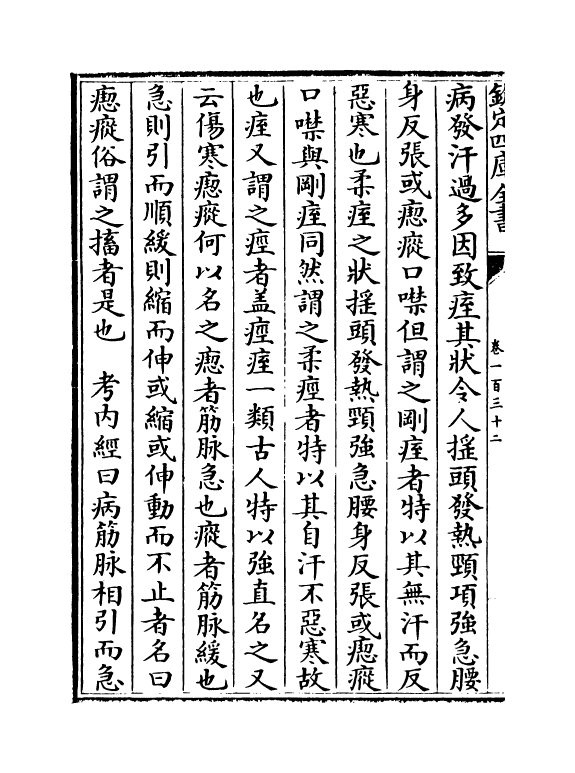 欽定四庫全書
卷一百三十二
病發汗過多因致痓其狀令人揺頭發熱頸項強急腰
身反張或瘛瘲口噤但謂之剛痓者特以其無汗而反
惡寒也柔痓之狀揺頭發熱頸強急腰身反張或瘛瘲
口噤與剛痓同然謂之柔痙者特以其自汗不惡寒故
也痓又謂之痙者盖痙痓一類古人特以強直名之又
云傷寒瘛瘲何以名之瘛者筋脉急也瘲者筋脉緩也
急則引而順緩則縮而伸或縮或伸動而不止者名曰
瘛瘲俗謂之搐者是也　考內經曰病筋脉相引而急